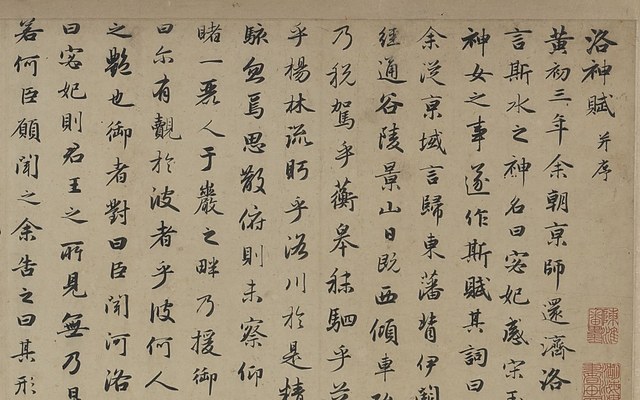 洛神賦 并序
黄初三年余朝亰師還濟洛
言斯水之神名曰宓妃感宋玉
神女之事遂作斯賦其詞曰
余從亰域言歸東藩背伊闕
經通谷陵景山日既西傾車殆
乃税駕乎蘅皋秣駟乎芝
乎楊林流眄乎洛川於是精
駭忽焉思散俯則未察仰
睹一麗人于巖之畔乃援御
曰尓有覿於彼者乎彼何人
之艷也御者對曰臣聞河洛
曰宓妃則君王之所見無乃是
若何臣願聞之余告之曰其形